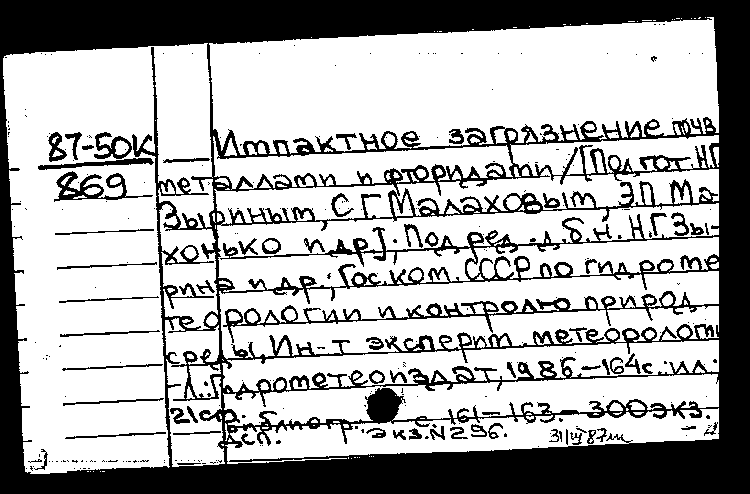 87-50К
869
Импактное загрязнение почв
металлами и фторидами / [Подгот. Н.Г.
Зыриным, С.Г. Малаховым, Э.П. Ма-
хонько и др.]; Под ред. д.б.н. Н.Г. Зы-
рина и др.; Гос. ком. СССР по гидроме
теорологии и контролю природ.
среды, Ин-т эксперим. метеорологи
- Л.: Гидрометеоиздат, 1986. - 164 с.: ил.;
21 см. Библиогр.: с. 161-163. - 300 экз.
ДСП. экз. N 296.